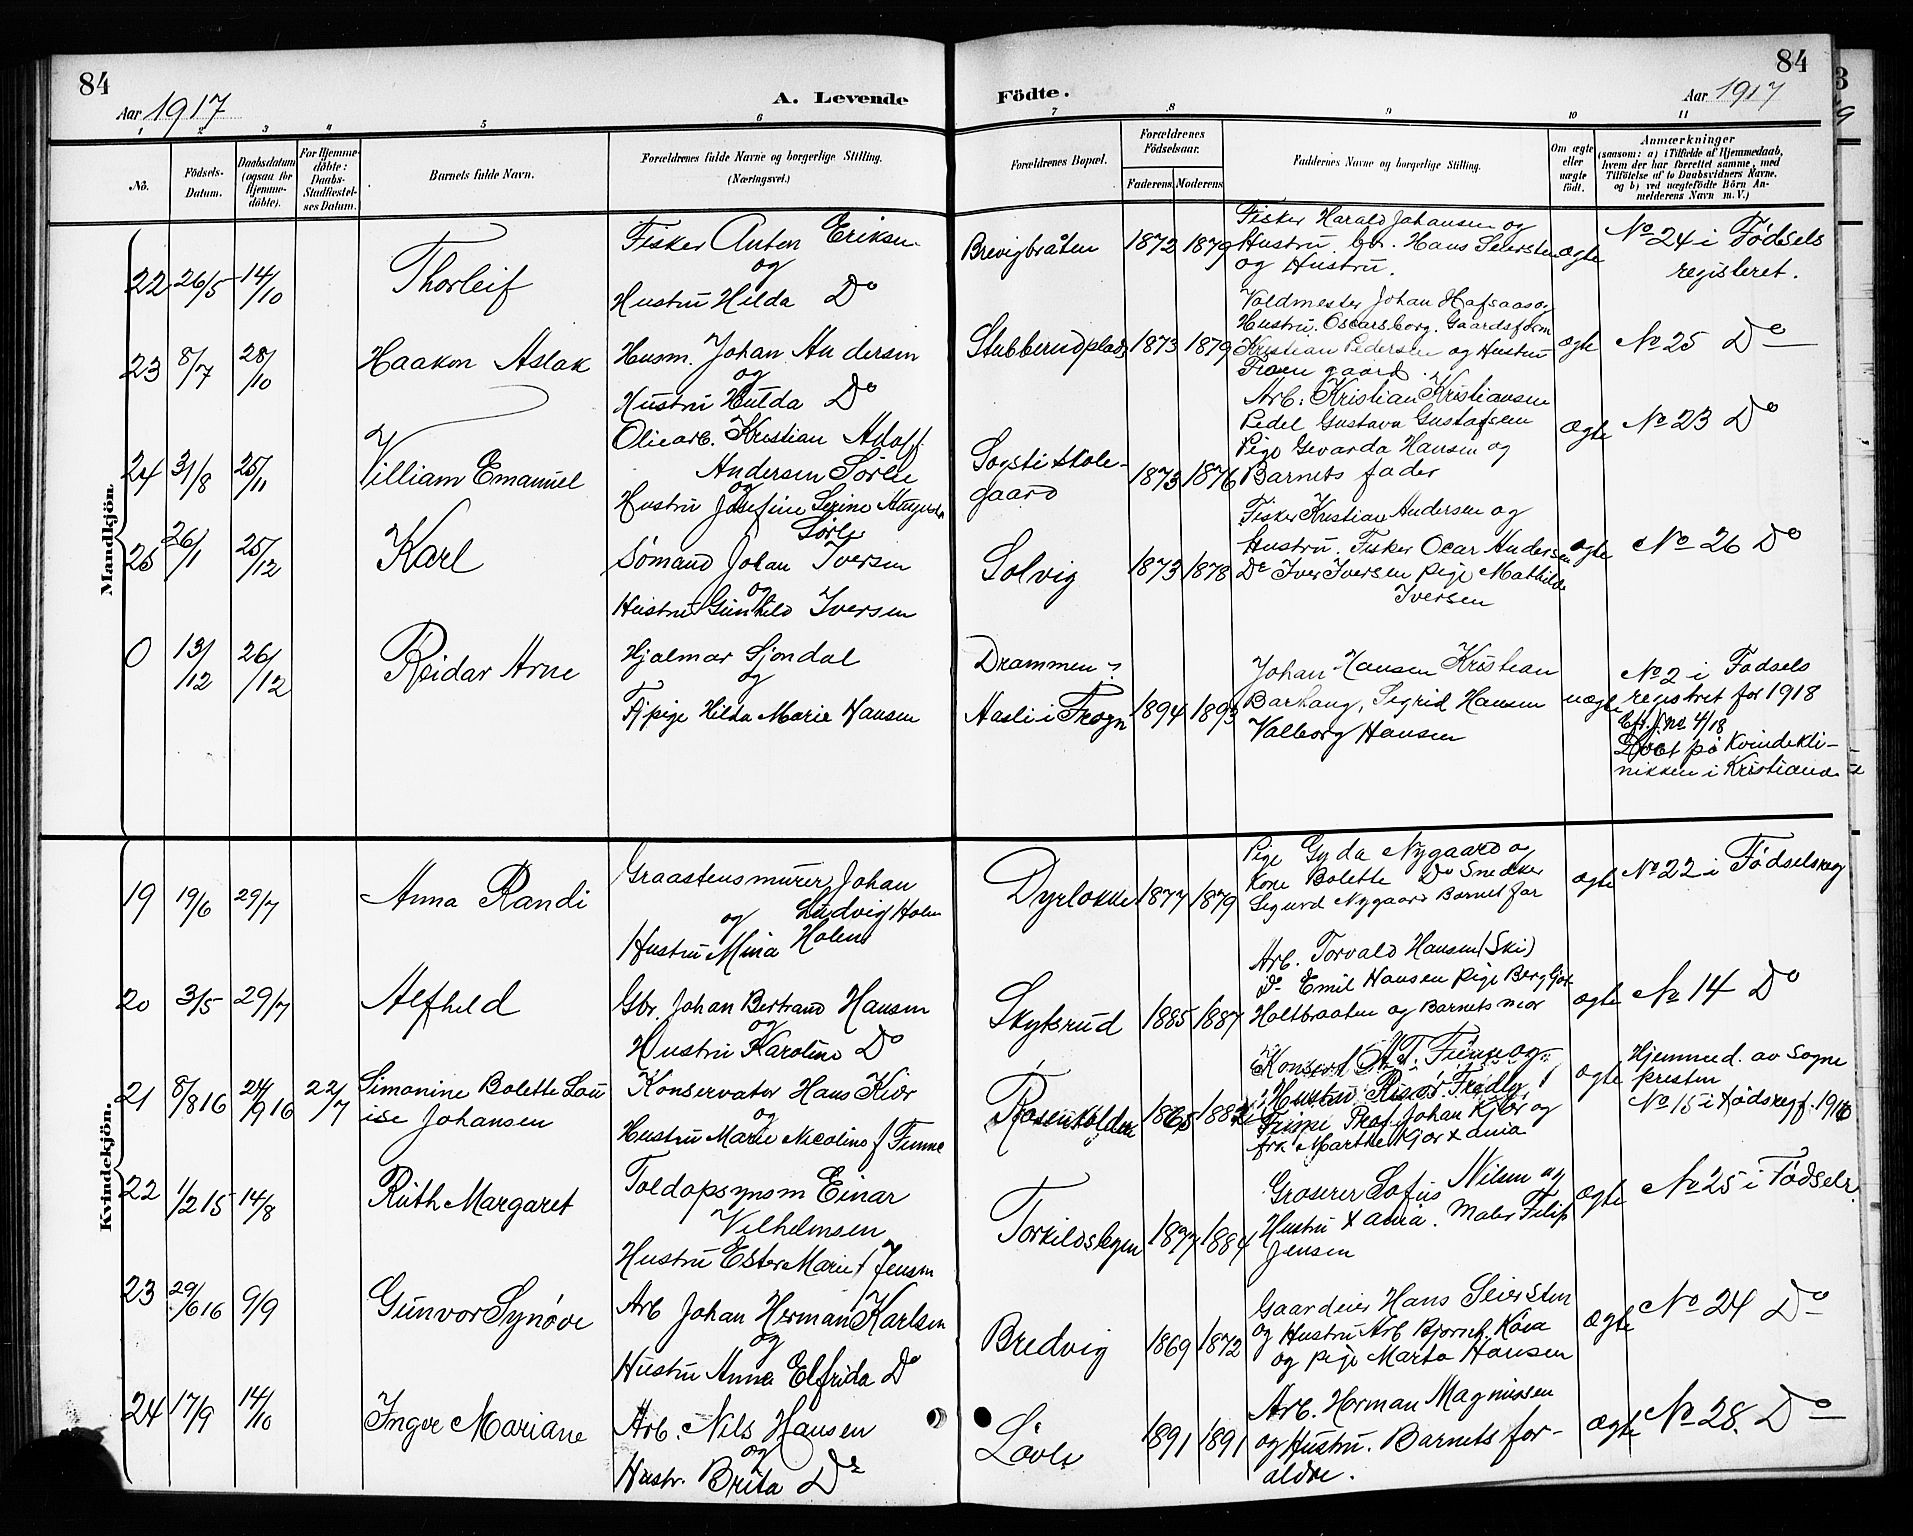 84
Aar 1917
A. Levende
Födte.
84
Aar 1917
1 2 3 4 5 6 7 8 9 10 11
Nö.
Födsels-
Datum.
Daabsdatum
(ogsaa for
Hjemme-
döbte).
For Hjemme-
döbte:
Daabs-
Stadfæstel-
ses Datum.
Barnets fulde Navn.
Forældrenes fulde Navne og borgerlige Stilling.
(Næringsvei.)
Forældrenes Bopæl.
Forældrenes
Födselsaar.
Faderens. Moderens.
Faddernes Navne og borgerlige Stilling.
Om ægte
eller
uægte
født.
Anmærkninger
(saasom: a) i Tilfælde af Hjemmedaab,
hvem der har forrettet samme, med
Tilföielse af to Daabsvidners Navne.
og b) ved uægtefödte Börn An-
melderens Navn m.V.)
Mandkjön.
22 26/5 14/10 Thorleif
Fisker Anton Eriksen
og
Hustru Hilda Do
Brevigbråten 1872 1879
Fisker Harald Johansen og
Hustru. Gbr. Hans Seiersten
og Hustru.
ægte
No 24 i Fødsels
registeret.
23 8/7 28/10 Haakon Aslak
Husm. Johan Andersen
og
Hustru Hulda Do
Stubberudplads 1873 1879
Voldmester Johan Hafsaas og
Hustru. Oscarsborg. Gaardsform
Kristian Pedersen og Hustru
Froen gaard.
ægte
No 25 Do
24 31/8 25/11 William Emanuel
Oliearb. Kristian Adolf
Andersen Sørle
og
Hustru Josefine Serine Augusta
Sørle
Sogsti skole-
gaard
1873 1876
Arb. Kristian Kristiansen
Pedel Gustava Gustafsen
Pige Gevarda Hansen og
Barnets fader
Ægte
No 23 Do
25 26/1 25/12 Karl
Sømand Johan Iversen
og
Hustru Gunhild Iversen
Solvig 1873 1878
Fisker Kristian Andersen og
Hustru. Fisker Ocar Andersen
Do Iver Iversen pige Mathilde
Iversen
ægte
No 26 Do
0 13/12 26/12 Reidar Arne
Hjalmar Sjondal
og
Fpige Hilda Marie Hansen
Drammen?
Aasli i Frogn 1894 1893
Johan Hansen Kristian
Barhaug, Sigrid Hansen
Valborg Hansen
uægte
No 2 i Fødsels
registret for 1918
Cfr. J. no 4/18
Døbt på Kvindekli-
nikken i Kristiania
Kvindekjön.
19 19/6 29/7 Anna Randi
Graastensmurer Johan
Ludvig Holm
og
Hustru Mina Holm
Dyrløkke 1877 1879
Pige Gyda Nygaard og
Kone Bolette Do Snedker
Sigurd Nygaard Barnet far
ægte
No 22 i Fødselsreg
20 3/5 29/7 Alfhild
Gbr. Johan Bertrand Hansen
og
Hustru Karoline Do
Skytsrud 1885 1887
Arb. Torvald Hansen (Ski)
Do Emil Hansen pige Bergljot
Holtbraaten og Barnets mor
ægte
No 14 Do
21 8/8 16 24/9 16 22/7
Simonine Bolette Lou
ise Johansen
Konservator Hans Kiær
og
Hustru Marie Nicoline f Finne
Rosenholdm 1865
Hustru
Prof. Johan Kjær og
frk Marthe Kjær Xania
ægte
Hjemmed. av Sogne
presten
No 15 i Fødsregf. 1916
22 1/2 15 14/8 Ruth Margaret
Toldopsynsm Einar
Vilhelmsen
Hustru Ester Marie f Jensen
Torkildsbyen 1877 1884
Groserer Sofus Nilsen og
Hustru Xania. Maler Filip
Jensen
Ægte
No 25 i Fødselsr.
23 29/6 16 9/9 Gunvor Synøve
Arb Johan Herman Karlsen
og
Hustru Anna Elfrida Do
Bredvig 1869 1872
Gaardeier Hans Seiersten
og Hustru Arb Bjarne Kåsa
og pige Marta Hansen
Ægte
No 24 Do
24 17/9 14/10 Inger Mariane
Arb. Nils Hansen
og
Hustr. Brita Do
Løvli 1891 1891
Arb. Herman Magnussen
og Hustru. Barnets for-
ældre.
Ægte
No 28. Do